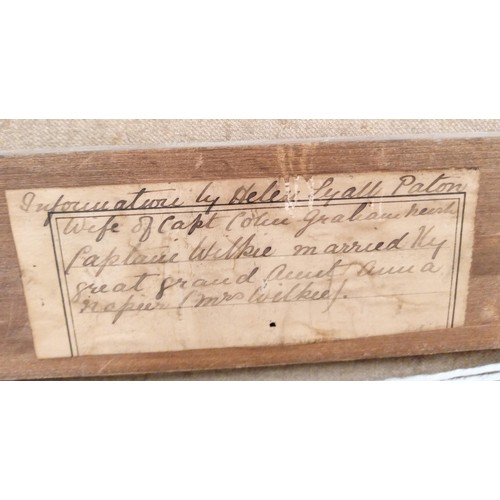 Information by Helen Lyall Paton
Wife of Capt Colin Graham
Captain Wilkie married My
great grand Aunt Anna
Napier (Mrs Wilkie).